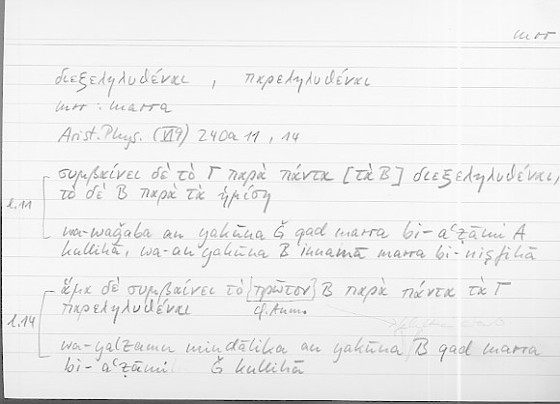 mrr
διεξεληλυθέναι , παρεληλυθέναι
mrr : marra
Arist. Phys. (VI 9) 240a 11 , 14
συμβαίνει δὲ τὸ Γ παρὰ πάντα [τὰ Β] διεξεληλυθέναι,
τὸ δὲ Β παρὰ τὰ ἡμίση
l. 11
wa-waǧaba an yakūna Ǧ qad marra bi-aʿẓāmi A
kullihā, wa-an yakūna B innamā marra bi-niṣfihā
ἅμα δὲ συμβαίνει τὸ [πρῶτον] Β παρὰ πάντα τὰ Γ
παρεληλυθέναι cf. Anm.
l. 14
wa-yalzamu min ḏālika an yakūna B qad marra
bi-aʿẓāmi Ǧ kullihā